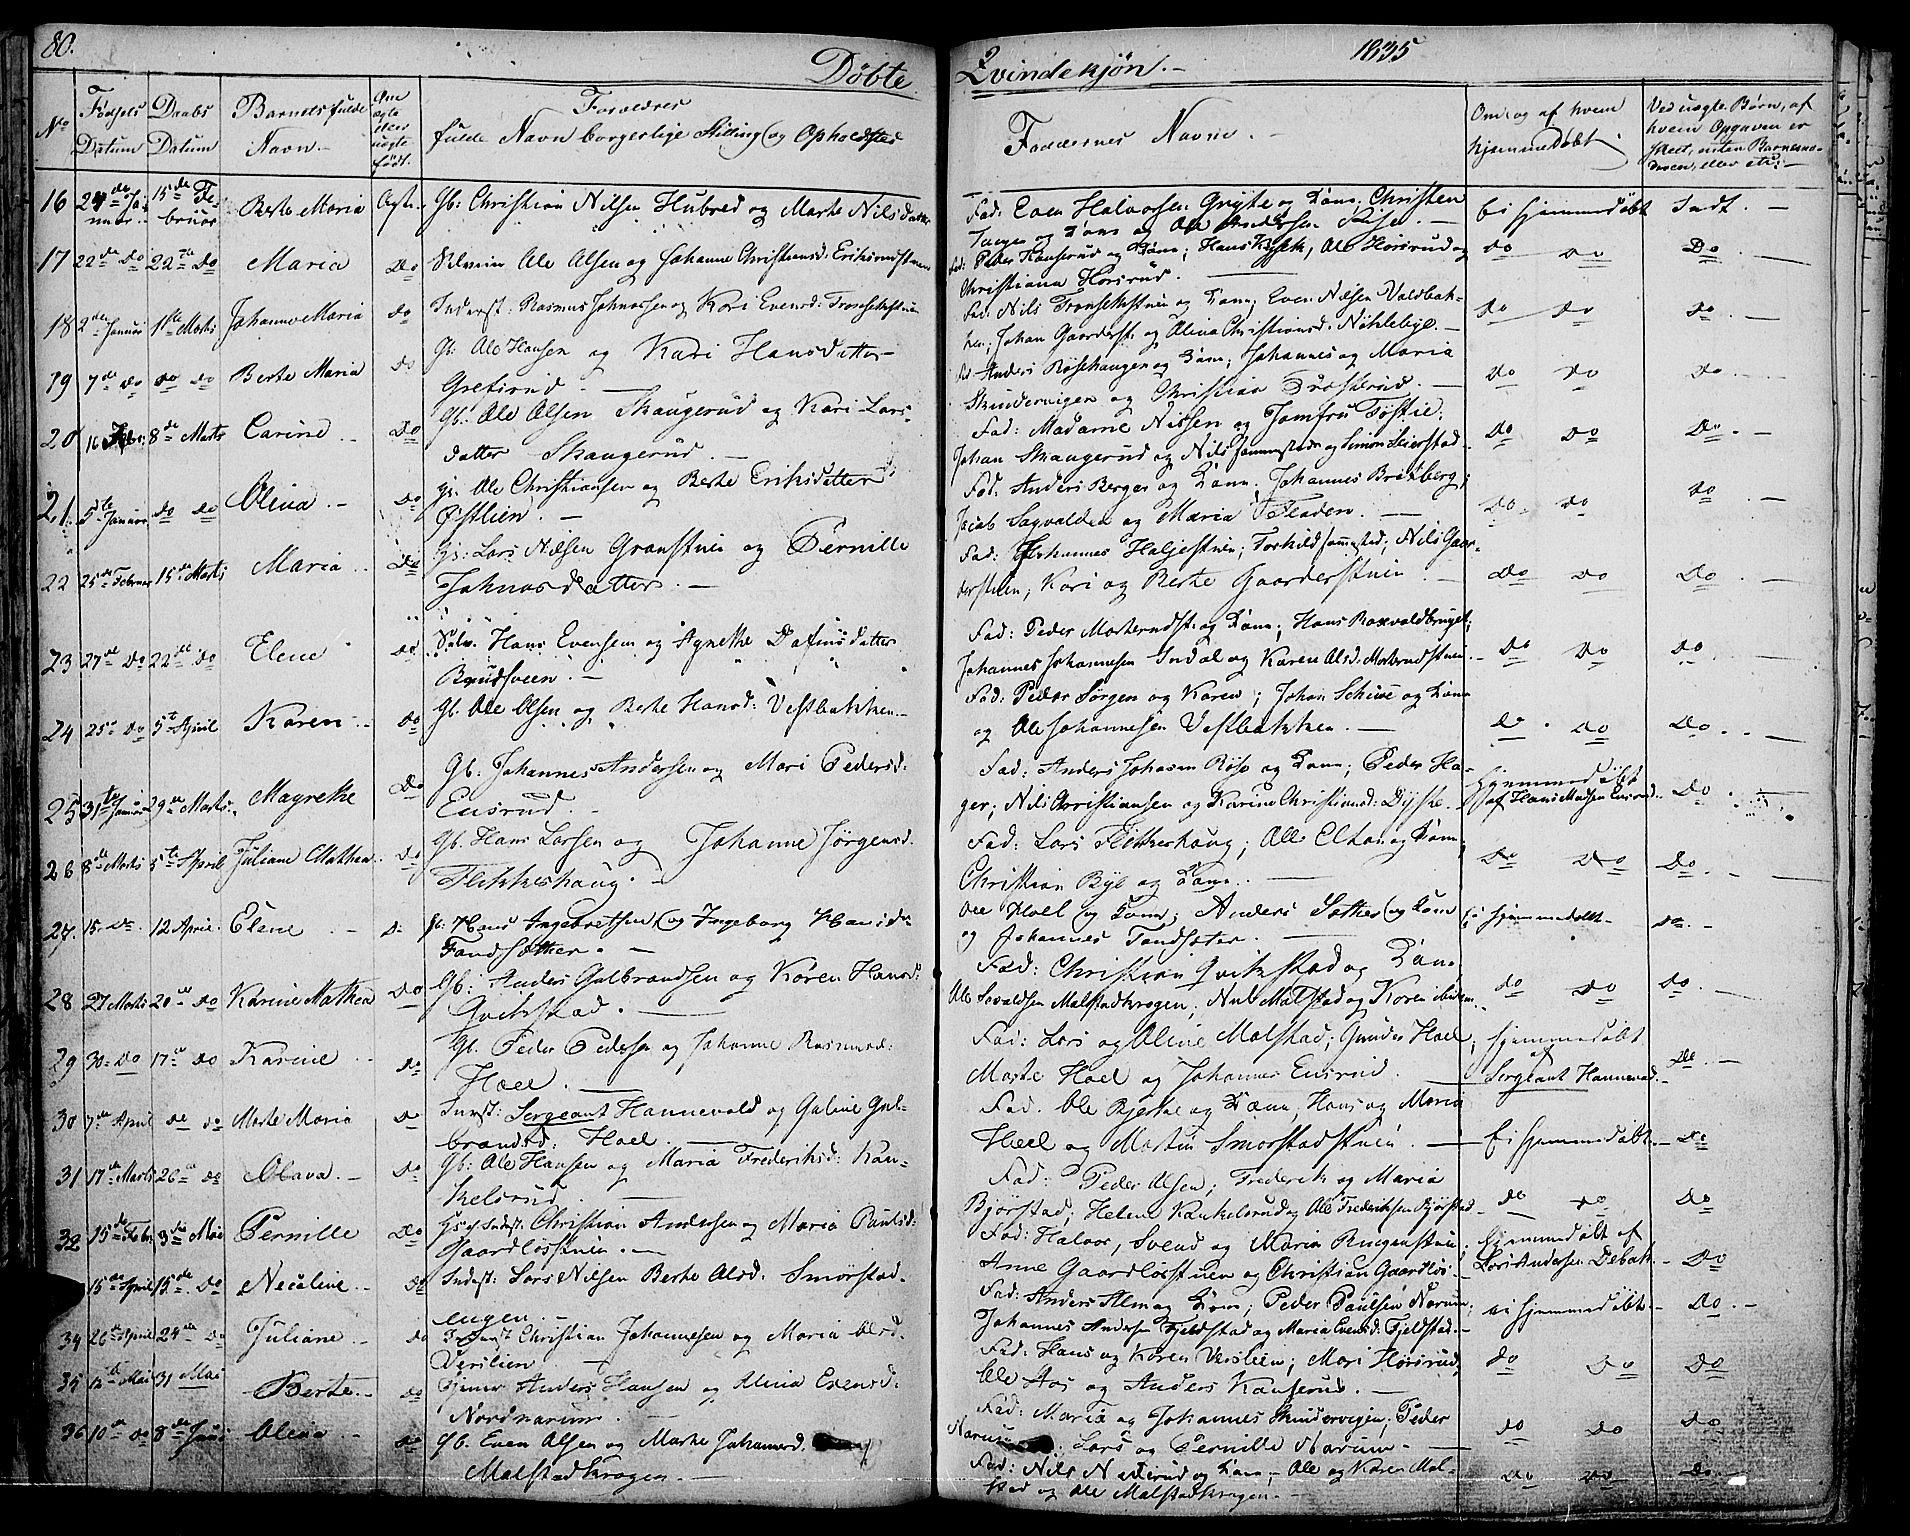 80.
Döbte
Qvindekjön.-
1835
No
Födsels Datum
Daabs Datum
Barnets fulde Navn.-
Om ægte eller uægte født.
Forældres
fulde Navn borgerlige Stilling og Opholdsted
Faddernes Navne.-
Om, og af hvem hjemmedöbt
Ved uægte Børn, af hvem Opgaven er skeet, enten Barnemoderen, eller etc: -
16 24de Januar. 15de Februar Berte Maria Ægte. Gb: Christian Nilsen Hubred og Marte Nilsdatter
Fad: Even Halvorsen Gryte og Kone; Christen
og Kone og Ole Andersen
Ei hjemmedöbt Indt. -
17 22de do 22de do Maria Do Selveier Ole Olsen og Johanne Christiansd: Eriksrudstuen
Fad: Peder og Kone; Hans, Ole Horsrud og
Christiana Horsrud.
do do Do
18 2de Januar 1ste Marts Johanne Maria do Inderst: Rasmus Johnsen og Kari Evensd:
Fad: Nils og Kone; Even Nilsen Valdbak-
ken; Johan Gaarderst: og Olina Christiansd: Nihlebye. -
do do do
19 7de do do do Berte Maria do Gb: Ole Hansen og Kari Hansdatter
Grefsrud. -
Anders Røsehaugen og Kone; Johannes og Maria
Skindervigen og Christian
do do do
20 16 Febr: 8de Marts Carine. Do Gb: Ole Olsen Skaugerud og Kari Lars
datter Skaugerud. -
Fad: Madame Nissen og Jomfru
Johan Skaugerud og Nils og Simon
do do do
21 5te Januar do do Olina. - Do gs: Ole Christiansen og Berte Eriksdatter
Østlien. -
Fad: Anders Berger og Kone. Johannes
Jacob Sagvolden og Maria Fladen. -
do do do
22 25de Februar 15de Marts Maria. - Do gs: Lars Nilsen og Pernille
Johnasdatter. -
Fad: Johannes; Torkild; Nils Gaar-
derstuen, Kari og Berte Gaarderstuen. -
Do Do Do. -
23 27de Do 22de do Elene do Selv: Hans Evensen og Agnethe
-
Fad: Peder og Kone; Hans
Johannes Johannesen Indal og Karen Olsd:
Do Do Do. -
24 25de do 5te April Karen. - do Gb. Ole Olsen og Berte Hansd: Vestbakken. -
Fad: Peder Jørgen og Karen; Johan og Kone
og Ole Johannesen Vestbakken. -
do do Do. -
25 31te Januar 29de Marts. Magrethe Do Gb: Johannes Andersen og Mari Pedersd:
Ensrud -
Fad: Anders Johnsen og Kone; Peder Ha-
ger; Nils Christiansen og Karine Christiansd:
Hjemmedöbt
af Hans Madsen Ensrud. Do. -
26 8de Marts 5te April Juliane Mathea. do Gb: Hans Larsen og Johanne Jørgensd:
Flikkeshaug. -
Fad: Lars Flikkeshaug; Ole Elton og Kone;
Christian Bye og Kone. -
Do Do Do. -
27. 15. do. 12 April. Elene - d: Gb: Hans Ingebretsen, og Ingeborg Hansdr
Tandsæther. -
Ole Hoel og Kone; Anders Sæther og Kone
og Johannes Tandsæter. -
Ei hjemmedöbt - do. -
28 27 Marts 20de do Karine Mathea Do Gb: Anders Gulbrandsen og Karen Hansd:
Qvikstad. -
Fad: Christian Qvikstad og Kone
Ole Malstadkrogen; Malstad og Karen ibidem.
do do do. -
29 30- do 17de do Karine - do Gb. Peder Pedersen og Johanne Rasmusd:
Hoel. -
Fad: Lars og Oline Malstad; Gunder Hoel,
Marte Hoel og Johannes Ensrud.
hjemmedöbt
af
Sergeant Hannevold. - Do. -
30 7de April do do Marte Maria do Inerst: Sergeant Hannevold og Guline Gul-
brandsd: Hoel. -
Fad: Ole Bjerke og Kone, Hans og Maria
Hoel og Martin Smørstadstuen. -
Ei hjemmedöbt - Do
31 17de Marts 26de do Olava. - Do Gb: Ole Hansen og Maria Frederiksd: Kan-
kelsrud. -
Fad: Peder Olsen; Frederik og Maria
Bjørstad; Helene Kankelsrud og Ole Frederiksen Bjørstad
do do Do
32 15de Febr 3die Mai Pernille Do Gs: Indst: Christian Andersen og Maria Paulsd:
Gaardløsstuen. -
Fad: Halvor, Svend og Maria Ringenstuen
Anne Gaardløsstuen og Christian Gaardløs.-
Hjemmedöbt af
Lars Andersen Debak. - Do
15de April 15de do Nicoline. - do Inderst: Lars Nilsen Berte Olsd: Smørstad-
engen. -
Fad: Anders Alm og Kone; Peder Paulsen Narum;
Johannes Andersen Fjeldstad og Maria Evensd: Fjeldstad. -
ei hjemmedöbt. - Do. -
34 26de April 24de do Juliane. - do Indst Christian Johannesen og Maria Olsd:
Verslien. -
Fad: Hans og Karen Verslien; Mari Horsrud;
Ole Aas og Anders Kanserud. -
do do Do
35 12te Mai 31 Mai Berte. - do Tjener Anders Hansen og Olina Evensd:
Nordnarum. -
Fad: Maria og Johannes Skindervigen; Peder
Narum; Lars og Pernille Narum. -
do do do
36 10de do 8de Juni Olina do Gb. Even Olsen og Marte Johannesd.
Malstadkrogen. -
Fad: Nils Nederud og Kone, - Ole og Karen Mal-
stad og Ole Malstadkrogen. -
do do Do